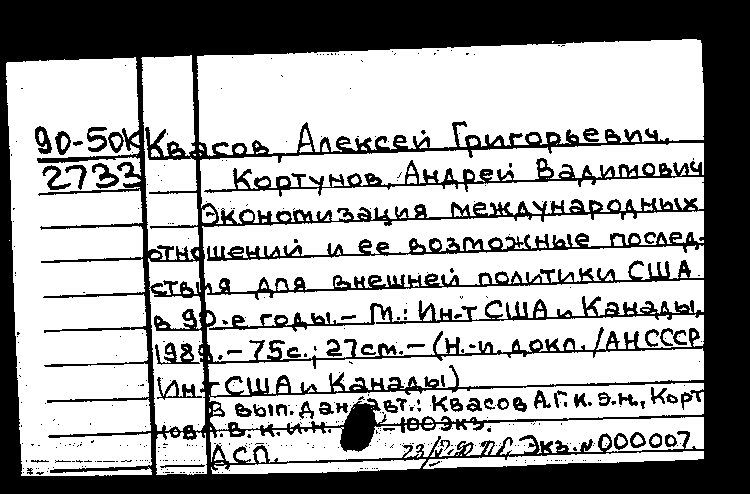 90-50К Квасов, Алексей Григорьевич,
2733 Кортунов, Андрей Вадимович
Экономизация международных
отношений и ее возможные послед-
ствия для внешней политики США
в 90-е годы.- М.: Ин-т США и Канады,
1989.- 75с.; 27см.- (Н.-и. докл. /АН СССР
Ин-т США и Канады).
В вып. дан. авт.: Квасов А.Г. к.э.н., Корт
нов А.В. к.и.н. - 100 экз.
ДСП. Экз. № 000007.